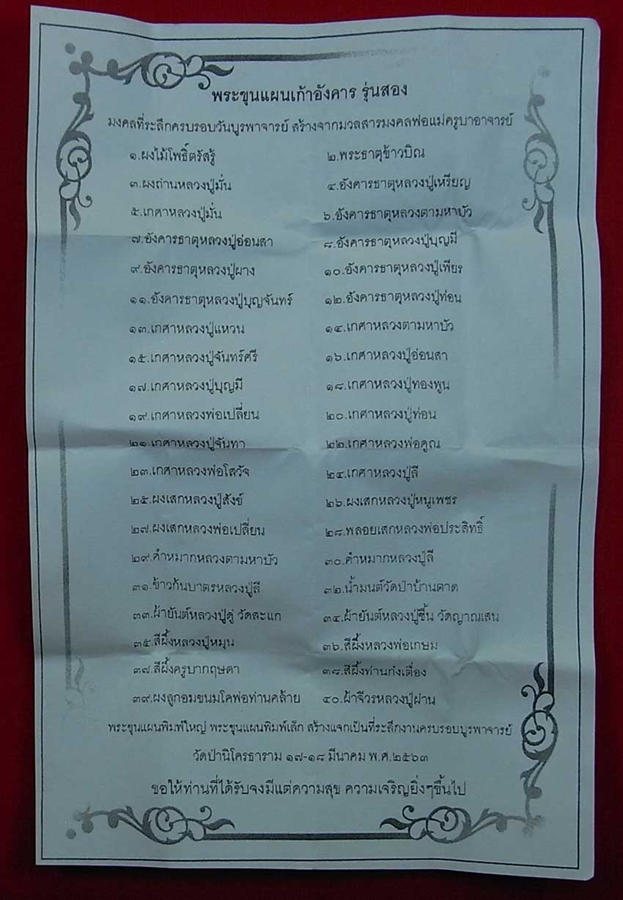 พระขุนแผนเก้าอังคาร รุ่นสอง
มงคลที่ระลึกครบรอบวันบูรพาจารย์ สร้างจากมวลสารมงคลพ่อแม่ครูบาอาจารย์
๑.ผงไม้โพธิ์ตรัสรู้ ๒.พระธาตุข้าวบิณ
๓.ผงถ่านหลวงปู่มั่น ๔.อังคารธาตุหลวงปู่เหรียญ
๕.เกศาหลวงปู่มั่น ๖.อังคารธาตุหลวงตามหาบัว
๗.อังคารธาตุหลวงปู่อ่อนสา ๘.อังคารธาตุหลวงปู่บุญมี
๙.อังคารธาตุหลวงปู่ผาง ๑๐.อังคารธาตุหลวงปู่เพียร
๑๑.อังคารธาตุหลวงปู่บุญจันทร์ ๑๒.อังคารธาตุหลวงปู่ท่อน
๑๓.เกศาหลวงปู่แหวน ๑๔.เกศาหลวงตามหาบัว
๑๕.เกศาหลวงปู่จันทร์ศรี ๑๖.เกศาหลวงปู่อ่อนสา
๑๗.เกศาหลวงปู่บุญมี ๑๘.เกศาหลวงปู่ทองพูน
๑๙.เกศาหลวงพ่อเปลี่ยน ๒๐.เกศาหลวงปู่ท่อน
๒๑.เกศาหลวงปู่จันทา ๒๒.เกศาหลวงพ่อคูณ
๒๓.เกศาหลวงพ่อโสวัจ ๒๔.เกศาหลวงปู่ลี
๒๕.ผงเสกหลวงปู่สังข์ ๒๖.ผงเสกหลวงปู่หนูเพชร
๒๗.ผงเสกหลวงพ่อเปลี่ยน ๒๘.พลอยเสกหลวงพ่อประสิทธิ์
๒๙.คำหมากหลวงตามหาบัว ๓๐.คำหมากหลวงปู่ลี
๓๑.ข้าวก้นบาตรหลวงปู่ลี ๓๒.น้ำมนต์วัดป่าบ้านตาด
๓๓.ผ้ายันต์หลวงปู่ดู่ วัดสะแก ๓๔.ผ้ายันต์หลวงปู่ชื้น วัดญาณเสน
๓๕.สีผึ้งหลวงปู่หมุน ๓๖.สีผึ้งหลวงพ่อเกษม
๓๗.สีผึ้งครูบากฤษดา ๓๘.สีผึ้งท่านก๋งเตื่อง
๓๙.ผงลูกอมขนมโคพ่อท่านคล้าย ๔๐.ผ้าจีวรหลวงปู่ผ่าน
พระขุนแผนพิมพ์ใหญ่ พระขุนแผนพิมพ์เล็ก สร้างแจกเป็นที่ระลึกงานครบรอบบูรพาจารย์
วัดป่านิโครธาราม ๑๗-๑๘ มีนาคม พ.ศ.๒๕๖๓
ขอให้ท่านที่ได้รับจงมีแต่ความสุข ความเจริญยิ่งๆขึ้นไป